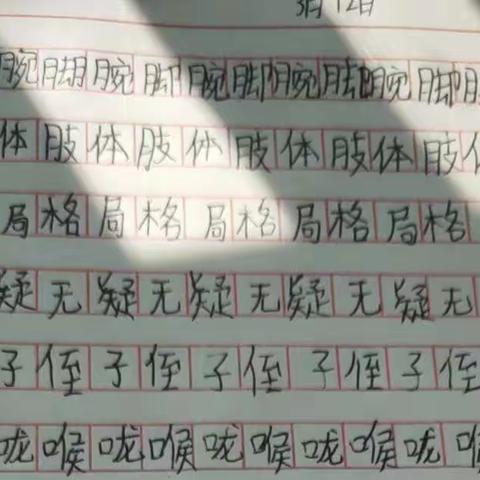 3月12日
腕脚腕脚腕脚腕脚腕脚
体肢体肢体肢体肢体肢
局格局格局格局格局格
疑无疑无疑无疑无疑无
子侄子侄子侄子侄子侄
咙喉咙喉咙喉咙喉咙喉